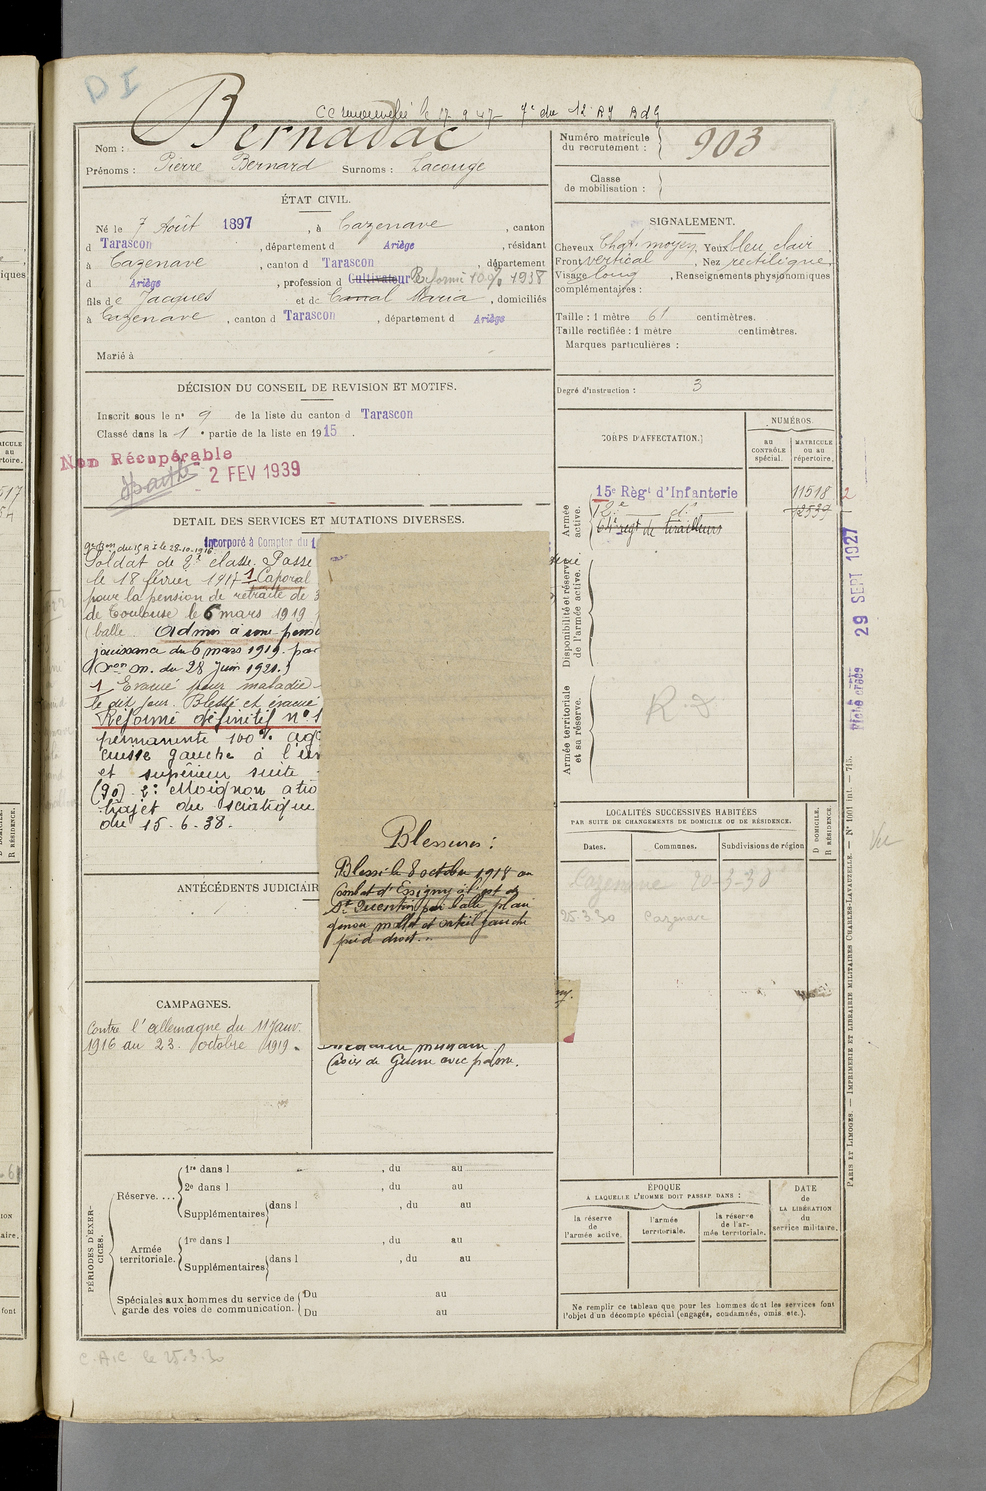 DI
CC renouvelé le 17 9 47 7e du 12 RJ BdG
Nom : Bernadac
Prénoms : Pierre Bernard Surnoms : Lacouge
Numéro matricule du recrutement : 903
Classe de mobilisation :
ÉTAT CIVIL.
Né le 7 Août 1897, à Cazenave, canton
d Tarascon, département d Ariège, résidant
à Cazenave, canton d Tarascon, département
d Ariège, profession d Cultivateur Réformé 100% 1938
fils de Jacques et de Canal Maria, domiciliés
à Cazenave, canton d Tarascon, département d Ariège
Marié à
SIGNALEMENT.
Cheveux Chat. moyen Yeux bleu clair
Front vertical, Nez rectiligne
Visage long, Renseignements physionomiques
complémentaires :
Taille : 1 mètre 61 centimètres.
Taille rectifiée : 1 mètre centimètres.
Marques particulières :
Degré d'instruction : 3
DÉCISION DU CONSEIL DE REVISION ET MOTIFS.
Inscrit sous le n° 9 de la liste du canton d Tarascon
Classé dans la 1e partie de la liste en 1915.
Non Récupérable
2 FEV 1939
CORPS D'AFFECTATION.
NUMÉROS
au CONTRÔLE spécial.
MATRICULE OU AU répertoire.
Armée active.
15e Régt d'Infanterie 11518
12e d° 12537
64e regt de tirailleurs
Disponibilité et réserve de l'armée active.
Armée territoriale et sa réserve.
R.D
2
1
Fiche créée 29 SEPT 1927
DETAIL DES SERVICES ET MUTATIONS DIVERSES.
Incorporé à Compter du 1
Soldat de 2e classe. Passé
le 18 février 1917 1 Caporal
pour la pension de retraite de 3
de Toulouse le 6 mars 1919
(balle Admis à une pens
jouissance du 6 mars 1919. par
on. du 28 Juin 1921.)
1 Evacué pour maladie
le dit jour. Blessé et évacué
Réformé définitif n° 1
permanente 100%
cuisse gauche à l'un
et supérieur suite
(90) 2: Moignon atro
trajet du sciatique
du 15-6-38.
Blessures :
Blessé le 8 octobre 1918 au
Combat d'Essigny à l'est de
St Quentin par balle plaie
genou
pied droit.
ANTÉCÉDENTS JUDICIAIR
CAMPAGNES.
Contre l'allemagne du 11 Janv.
1916 au 23 octobre 1919.
Médaille militaire.
Croix de Guerre avec palme.
LOCALITÉS SUCCESSIVES HABITÉES
PAR SUITE DE CHANGEMENTS DE DOMICILE OU DE RÉSIDENCE.
Dates. Communes. Subdivisions de région
D DOMICILE.
R RÉSIDENCE.
Cazenave 20-3-30
25.3.30 Cazenave
Vu
PÉRIODES D'EXERCICES.
Réserve....
1re dans l , du au
2e dans l , du au
Supplémentaires dans l , du au
Armée territoriale.
1re dans l , du au
Supplémentaires dans l , du au
Spéciales aux hommes du service de garde des voies de communication.
Du au
Du au
ÉPOQUE
A LAQUELLE L'HOMME DOIT PASSER DANS :
la réserve de l'armée active.
l'armée territoriale.
la réserve de l'armée territoriale.
DATE de LA LIBÉRATION du service militaire.
Ne remplir ce tableau que pour les hommes dont les services font
l'objet d'un décompte spécial (engagés, condamnés, omis, etc.).
PARIS ET LIMOGES. — IMPRIMERIE ET LIBRAIRIE MILITAIRES CHARLES-LAVAUZELLE. — N° 1001 int. — 715.
C.A.C le 25.3.30